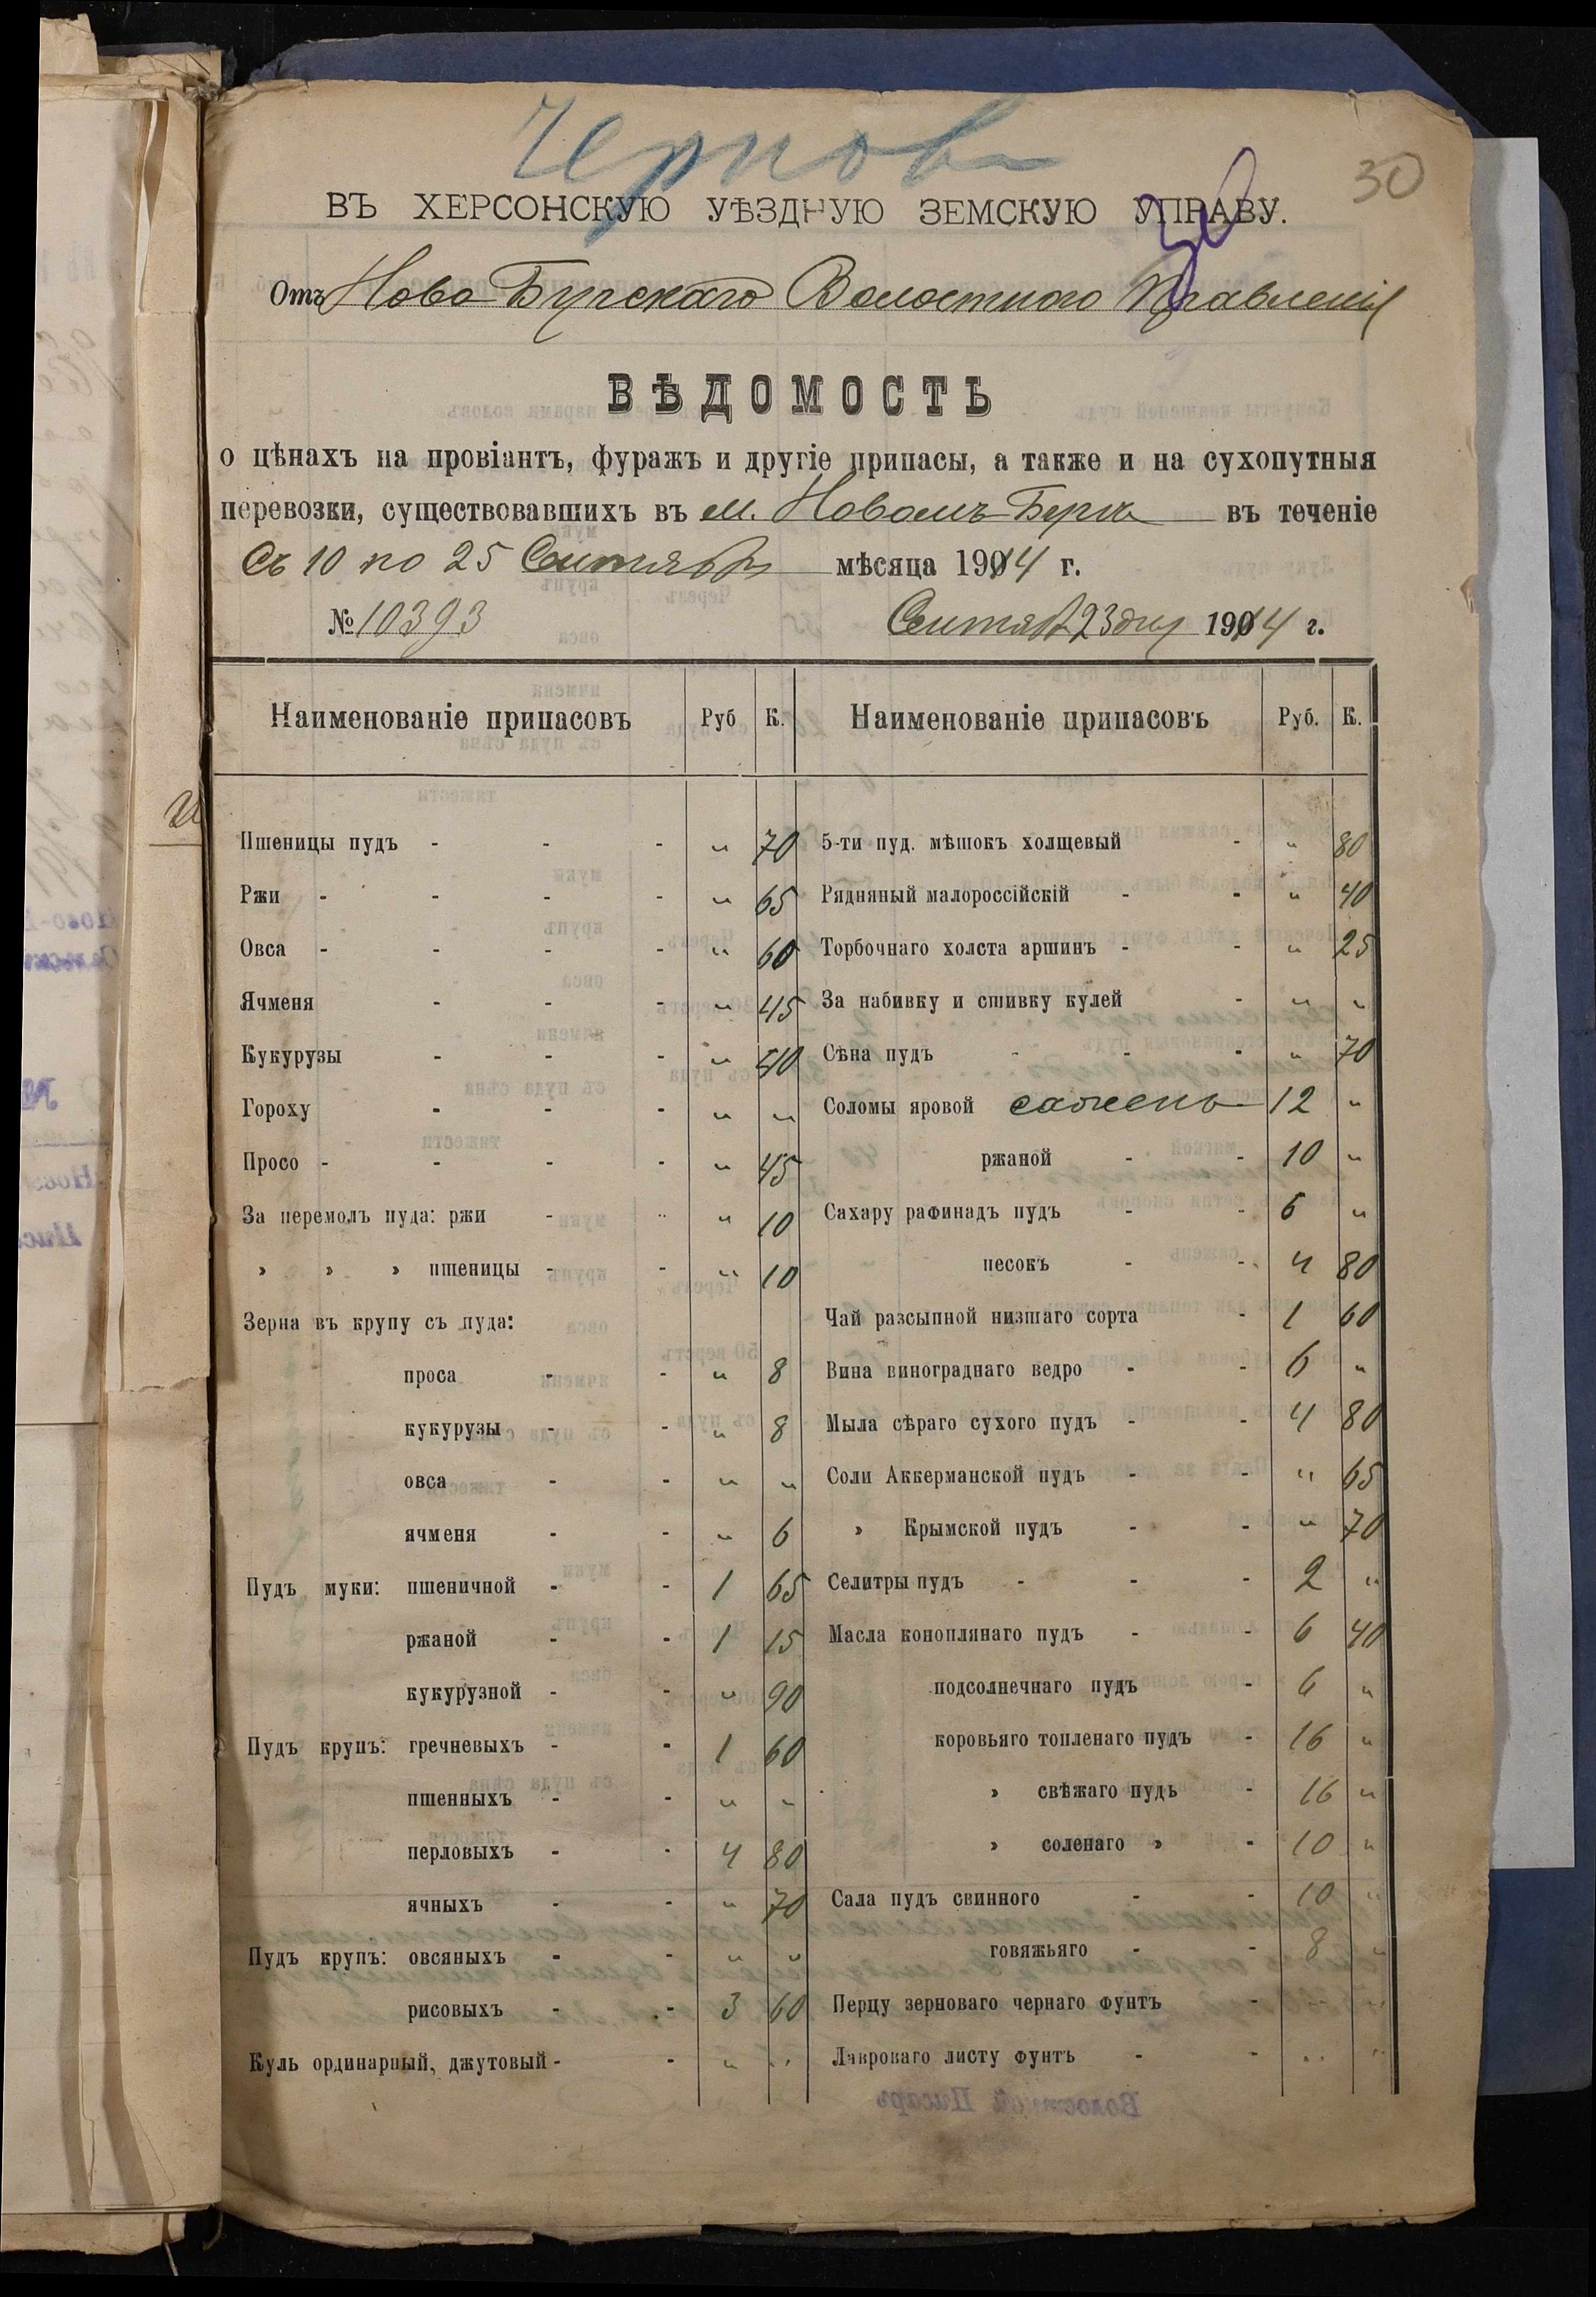 30
ВЪ ХЕРСОНСКУЮ УѢЗДНУЮ ЗЕМСКУЮ УПРАВУ.
Отъ Ново Бугскаго Волостного Правленія
ВѢДОМОСТЬ
о цѣнахъ на провіантъ, фуражъ и другіе припасы, а также и на сухопутныя
перевозки, существовавшихъ въ м. Новомъ-Бугѣ въ теченіе
Съ 10 по 25 Сентября мѣсяца 1914 г.
№ 10393 Сентября 23 дня 1914 г.
Наименованіе припасовъ Руб К. Наименованіе припасовъ Руб. К.
Пшеницы пудъ - - - " 70 5-ти пуд. мѣшокъ холщевый - " 80
Ржи - - - - " 65 Рядняный малороссійскій - - " 40
Овса - - - - " 60 Торбочнаго холста аршинъ - - " 25
Ячменя - - - " 45 За набивку и сшивку кулей - " "
Кукурузы - - - " 40 Сѣна пудъ - - - " 70
Гороху - - - " " Соломы яровой сажень 12 "
Просо - - - - " 45 ржаной - - 10 "
За перемолъ пуда: ржи - - " 10 Сахару рафинадъ пудъ - - 6 "
» » » пшеницы - - " 10 песокъ - - 4 80
Зерна въ крупу съ пуда: Чай разсыпной низшаго сорта - 1 60
проса - - " 8 Вина винограднаго ведро - - 6 "
кукурузы - - " 8 Мыла сѣраго сухого пудъ - - 4 80
овса - - " " Соли Аккерманской пудъ - - " 65
ячменя - - " 6 » Крымской пудъ - - " 70
Пудъ муки: пшеничной - - 1 65 Селитры пудъ - - - 2 "
ржаной - - 1 15 Масла коноплянаго пудъ - - 6 40
кукурузной - - " 90 подсолнечнаго пудъ - 6 "
Пудъ крупъ: гречневыхъ - - 1 60 коровьяго топленаго пудъ - 16 "
пшенныхъ - - " " » свѣжаго пудъ - 16 "
перловыхъ - - 4 80 » соленаго » - 10 "
ячныхъ - - " 70 Сала пудъ свинного - - 10 "
Пудъ крупъ: овсяныхъ - - " " говяжьяго - - 8 "
рисовыхъ - - 3 60 Перцу зерноваго чернаго фунтъ - " "
Куль ординарный, джутовый - - " " Лавроваго листу фунтъ - - " "